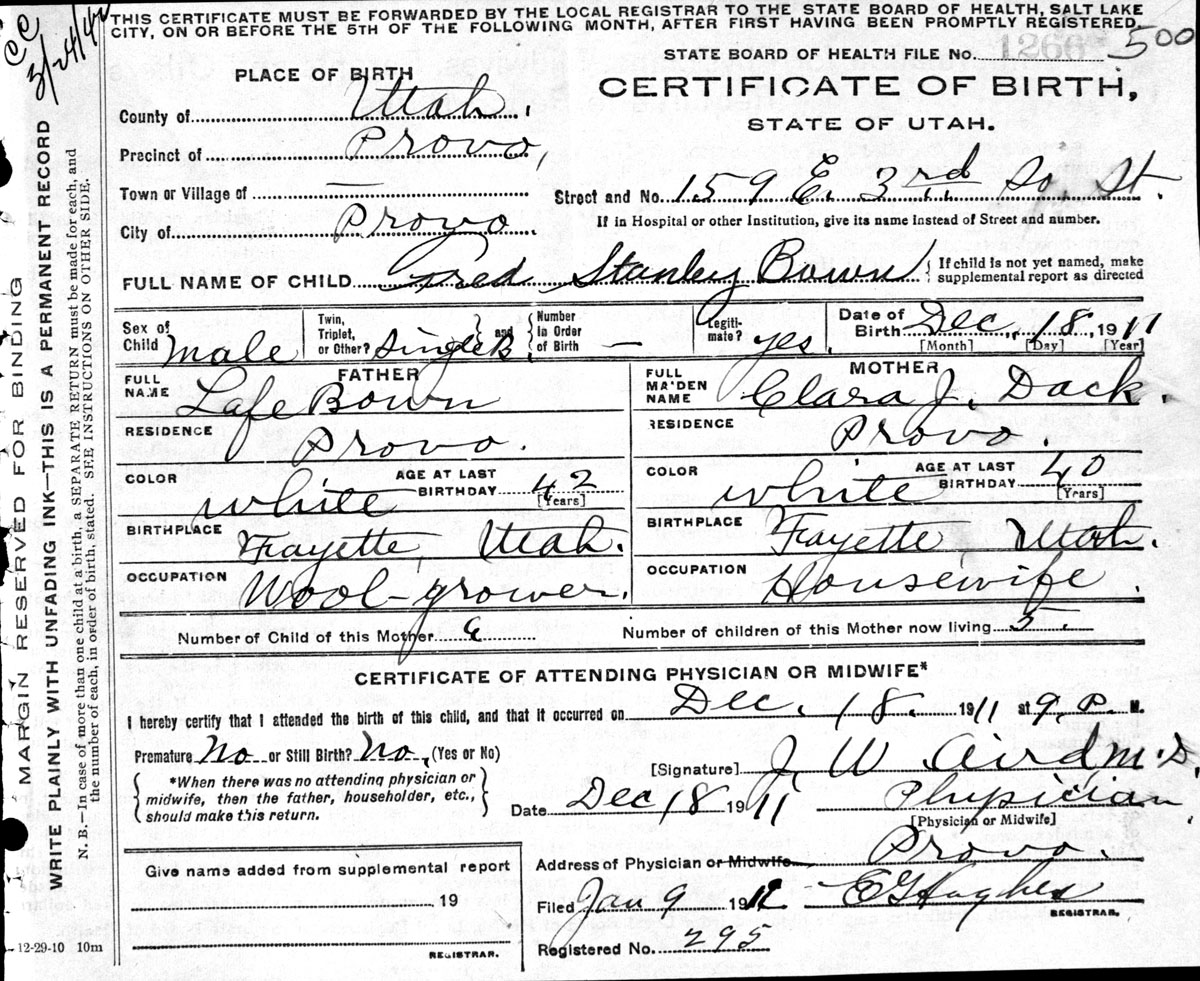 THIS CERTIFICATE MUST BE FORWARDED BY THE LOCAL REGISTRAR TO THE STATE BOARD OF HEALTH, SALT LAKE
CITY, ON OR BEFORE THE 5TH OF THE FOLLOWING MONTH, AFTER FIRST HAVING BEEN PROMPTLY REGISTERED.
CC
STATE BOARD OF HEALTH FILE No. 1266 500
PLACE OF BIRTH
CERTIFICATE OF BIRTH,
STATE OF UTAH.
County of Utah.
Precinct of Provo,
Town or Village of —
Street and No. 159 E. 3rd So. St.
City of Provo.
If in Hospital or other Institution, give its name instead of Street and number.
FULL NAME OF CHILD Fred Stanley Bown { If child is not yet named, make supplemental report as directed
Sex of Child male Twin, Triplet, or Other? Single B. and Number in Order of Birth — Legiti- mate? yes. Date of Birth Dec. 18, 1911
[Month] [Day] [Year]
FATHER
FULL NAME Lafe Bown
RESIDENCE Provo.
COLOR white AGE AT LAST BIRTHDAY 42 [Years]
BIRTHPLACE Fayette, Utah.
OCCUPATION Wool-grower.
MOTHER
FULL MAIDEN NAME Clara J. Dack.
RESIDENCE Provo.
COLOR white AGE AT LAST BIRTHDAY 40 [Years]
BIRTHPLACE Fayette Utah.
OCCUPATION Housewife.
Number of Child of this Mother Number of children of this Mother now living 5.
CERTIFICATE OF ATTENDING PHYSICIAN OR MIDWIFE*
I hereby certify that I attended the birth of this child, and that it occurred on Dec. 18. 1911 at 9, P. M.
Premature No or Still Birth? No, (Yes or No)
[Signature] J. W Aird M.D.
*When there was no attending physician or
midwife, then the father, householder, etc.,
should make this return.
Date Dec 18 1911 Physician
[Physician or Midwife]
Address of Physician or Midwife Provo.
Give name added from supplemental report
19
REGISTRAR.
Filed Jan 9 1912 E G Hughes
REGISTRAR.
Registered No. 295
12-29-10 10m
MARGIN RESERVED FOR BINDING
WRITE PLAINLY WITH UNFADING INK—THIS IS A PERMANENT RECORD
N. B.—In case of more than one child at a birth, a SEPARATE RETURN must be made for each, and
the number of each, in order of birth, stated. SEE INSTRUCTIONS ON OTHER SIDE.